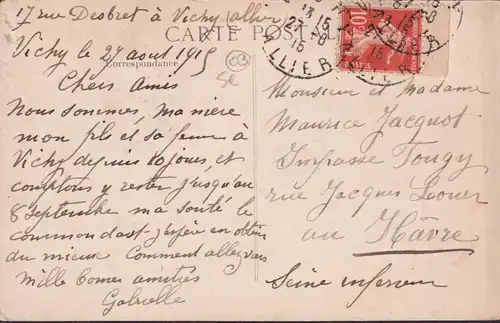 17 rue Desbret à Vichy (allier
CARTE POSTALE
Vichy le 27 aout 1915
Correspondance
Chers Amis
Nous sommes, ma niere
mon fils et sa femme à
Vichy depuis 10 jours et
comptons y rester jusqu'au
8 Septembre ma santé le
commandant j'espère en obtenir
du mieux Comment allez vous
Mille bonnes amitiés
Gabrielle
03
13 15
27-8
15
LLIER
10
POSTES
Monsieur et madame
Maurice Jacquot
Impasse Tougy
rue Jacques Louer
au Hâvre
Seine inferieur